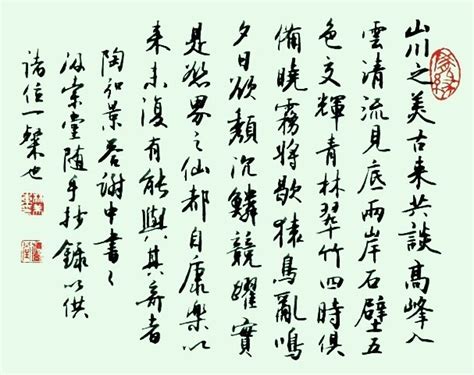 山川之美古来共談高峰入
雲清流見底兩岸石壁五
色交輝青林翠竹四時俱
備曉霧將歇猿鳥亂鳴
夕日欲頹沉鱗競躍實
是慾界之仙都自康樂以
来未復有能與其奇者
陶弘景答謝中書々
堂隨手抄錄以供
諸位一粲也